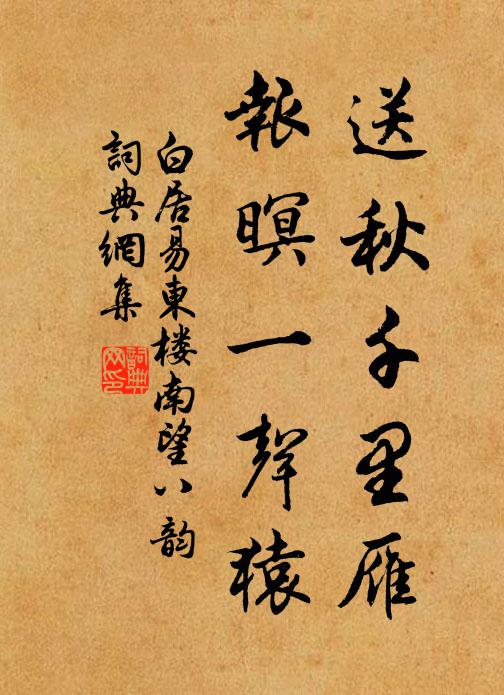 送秋千里雁
報暝一聲猿
白居易東樓南望八韵
詞典網集
詞典
网印